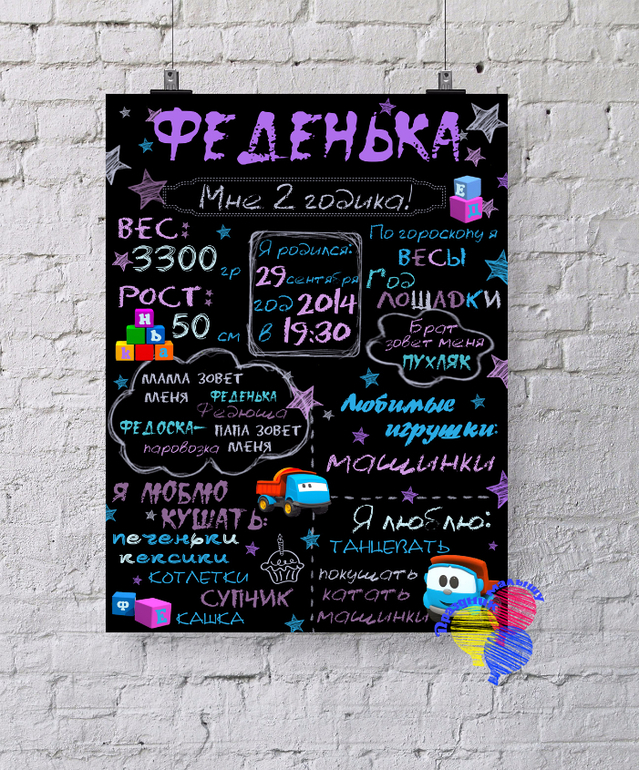 ФЕДЕНЬКА
Мне 2 годика!
Е
Д
ВЕС:
3300 гр
РОСТ:
50 см
Н
Ь
К А
Я родился:
29 сентября
год 2014
в 19:30
По гороскопу я
ВЕСЫ
Год
ЛОШАДКИ
Брат
зовет меня
ПУХЛЯК
МАМА ЗОВЕТ
МЕНЯ ФЕДЕНЬКА
Федюша
ФЕДОСКА- ПАПА ЗОВЕТ
паровозка МЕНЯ
Любимые
игрушки:
машинки
Я ЛЮБЛЮ
КУШАТЬ:
печеньки
кексики
КОТЛЕТКИ
СУПЧИК
КАШКА
Ф
Е
Я люблю:
ТАНЦЕВАТЬ
покушать
катать
машинки
Праздник малышу